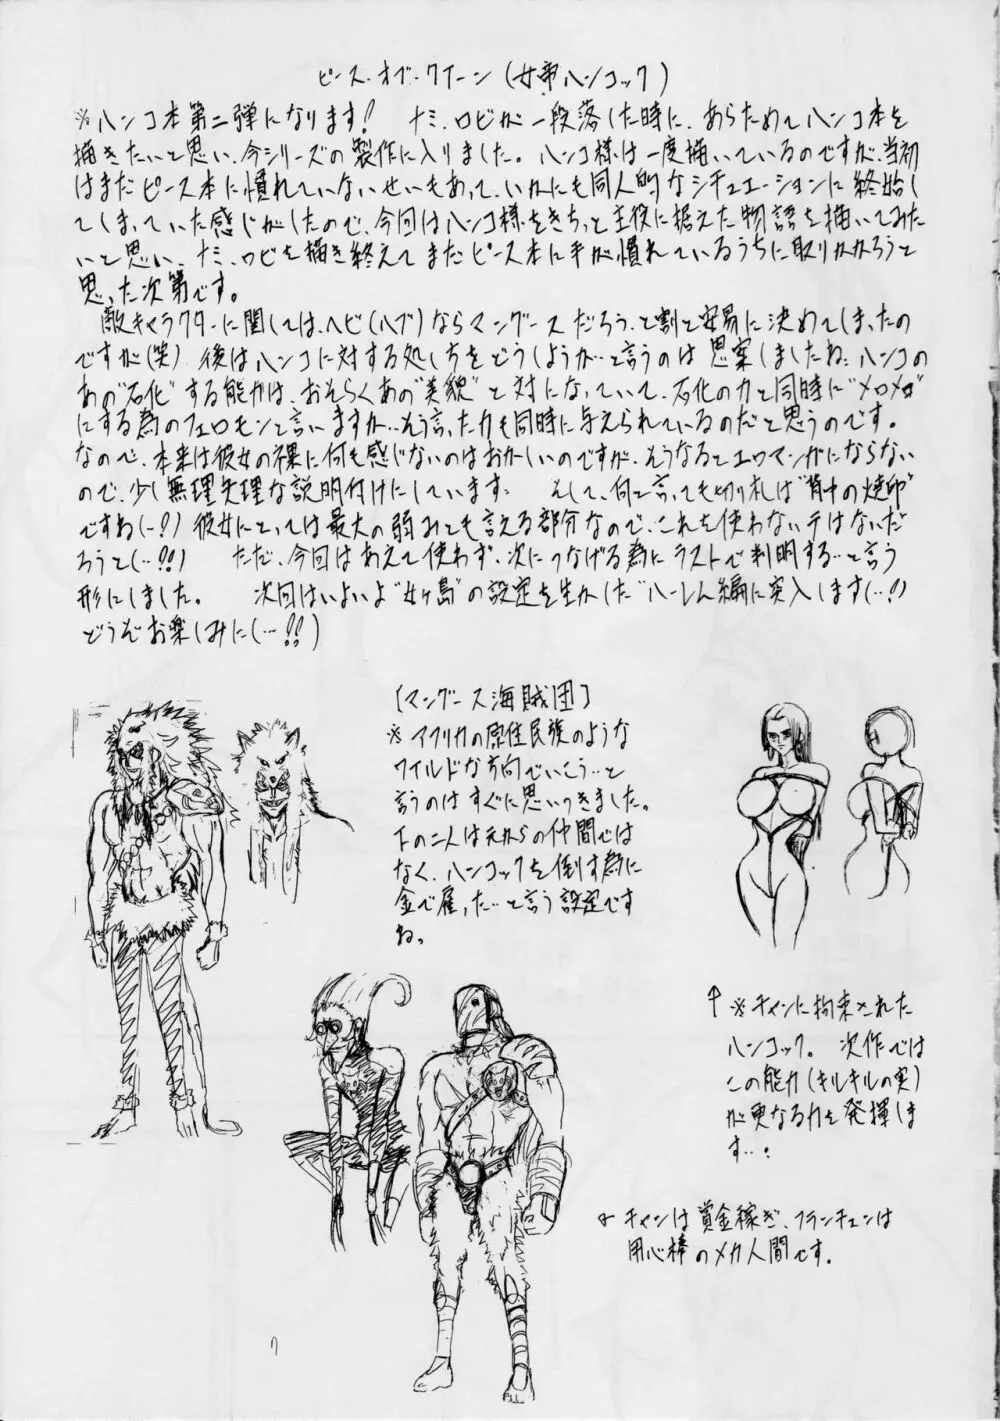 ピース・オブ・クイーン(女帝ハンコック)
※ハンコ本第二弾になります! ナミ、ロビが一段落した時に、あらためてハンコ本を
描きたいと思い、今シリーズの製作に入りました。ハンコ様は一度描いているのですが、当初
はまだピース本に慣れていないせいもあって、いかにも同人的なシチュエーションに終始し
てしまっていた感じがしたので、今回はハンコ様をきちっと主役に据えた物語を描いてみた
いと思い、ナミ、ロビを描き終えてまだピース本に手が慣れているうちに取りかかろうと
思った次第です。
敵キャラクターに関しては、ヘビ(ハブ)ならマングースだろう、と割と安易に決めてしまったの
ですが(笑) 後はハンコに対する処し方をどうしようか…と言うのは思案しましたね。ハンコの
あの"石化"する能力は、おそらくあの"美貌"と対になっていて、石化の力と同時に"メロメロ"
にする為のフェロモンと言いますか…そう言った力も同時に与えられているのだと思うのです。
なので、本来は彼女の裸に何も感じないのはおかしいのですが、そうなるとエロマンガにならない
ので、少し無理矢理な説明付けにしています。 そして、何と言っても切り札は"背中の焼印"
ですね(…!?) 彼女にとっては最大の弱みとも言える部分なので、これを使わないテはないだ
ろうと(…!!) ただ、今回はあえて使わず、次につなげる為にラストで判明する…と言う
形にしました。 次回はいよいよ"女ヶ島"の設定を生かした"ハーレム編に突入します(…!)
どうぞお楽しみに(…!!)
[マングース海賊団]
※アフリカの原住民族のような
ワイルドな方向でいこう…と
言うのはすぐに思いつきました。
下の二人は元からの仲間では
なく、ハンコックを倒す為に
金で雇った…と言う設定です
ね。
↑※チャンに拘束された
ハンコック。 次作では
この能力(キルキルの実)
が更なる力を発揮しま
す…!
チャンは賞金稼ぎ、フランチェンは
用心棒のメカ人間です。